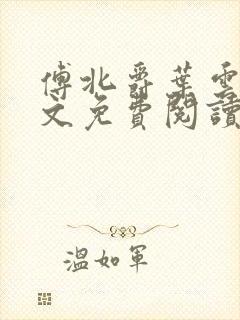 傅北爵葉雲
文免費閱讀
溫如軍